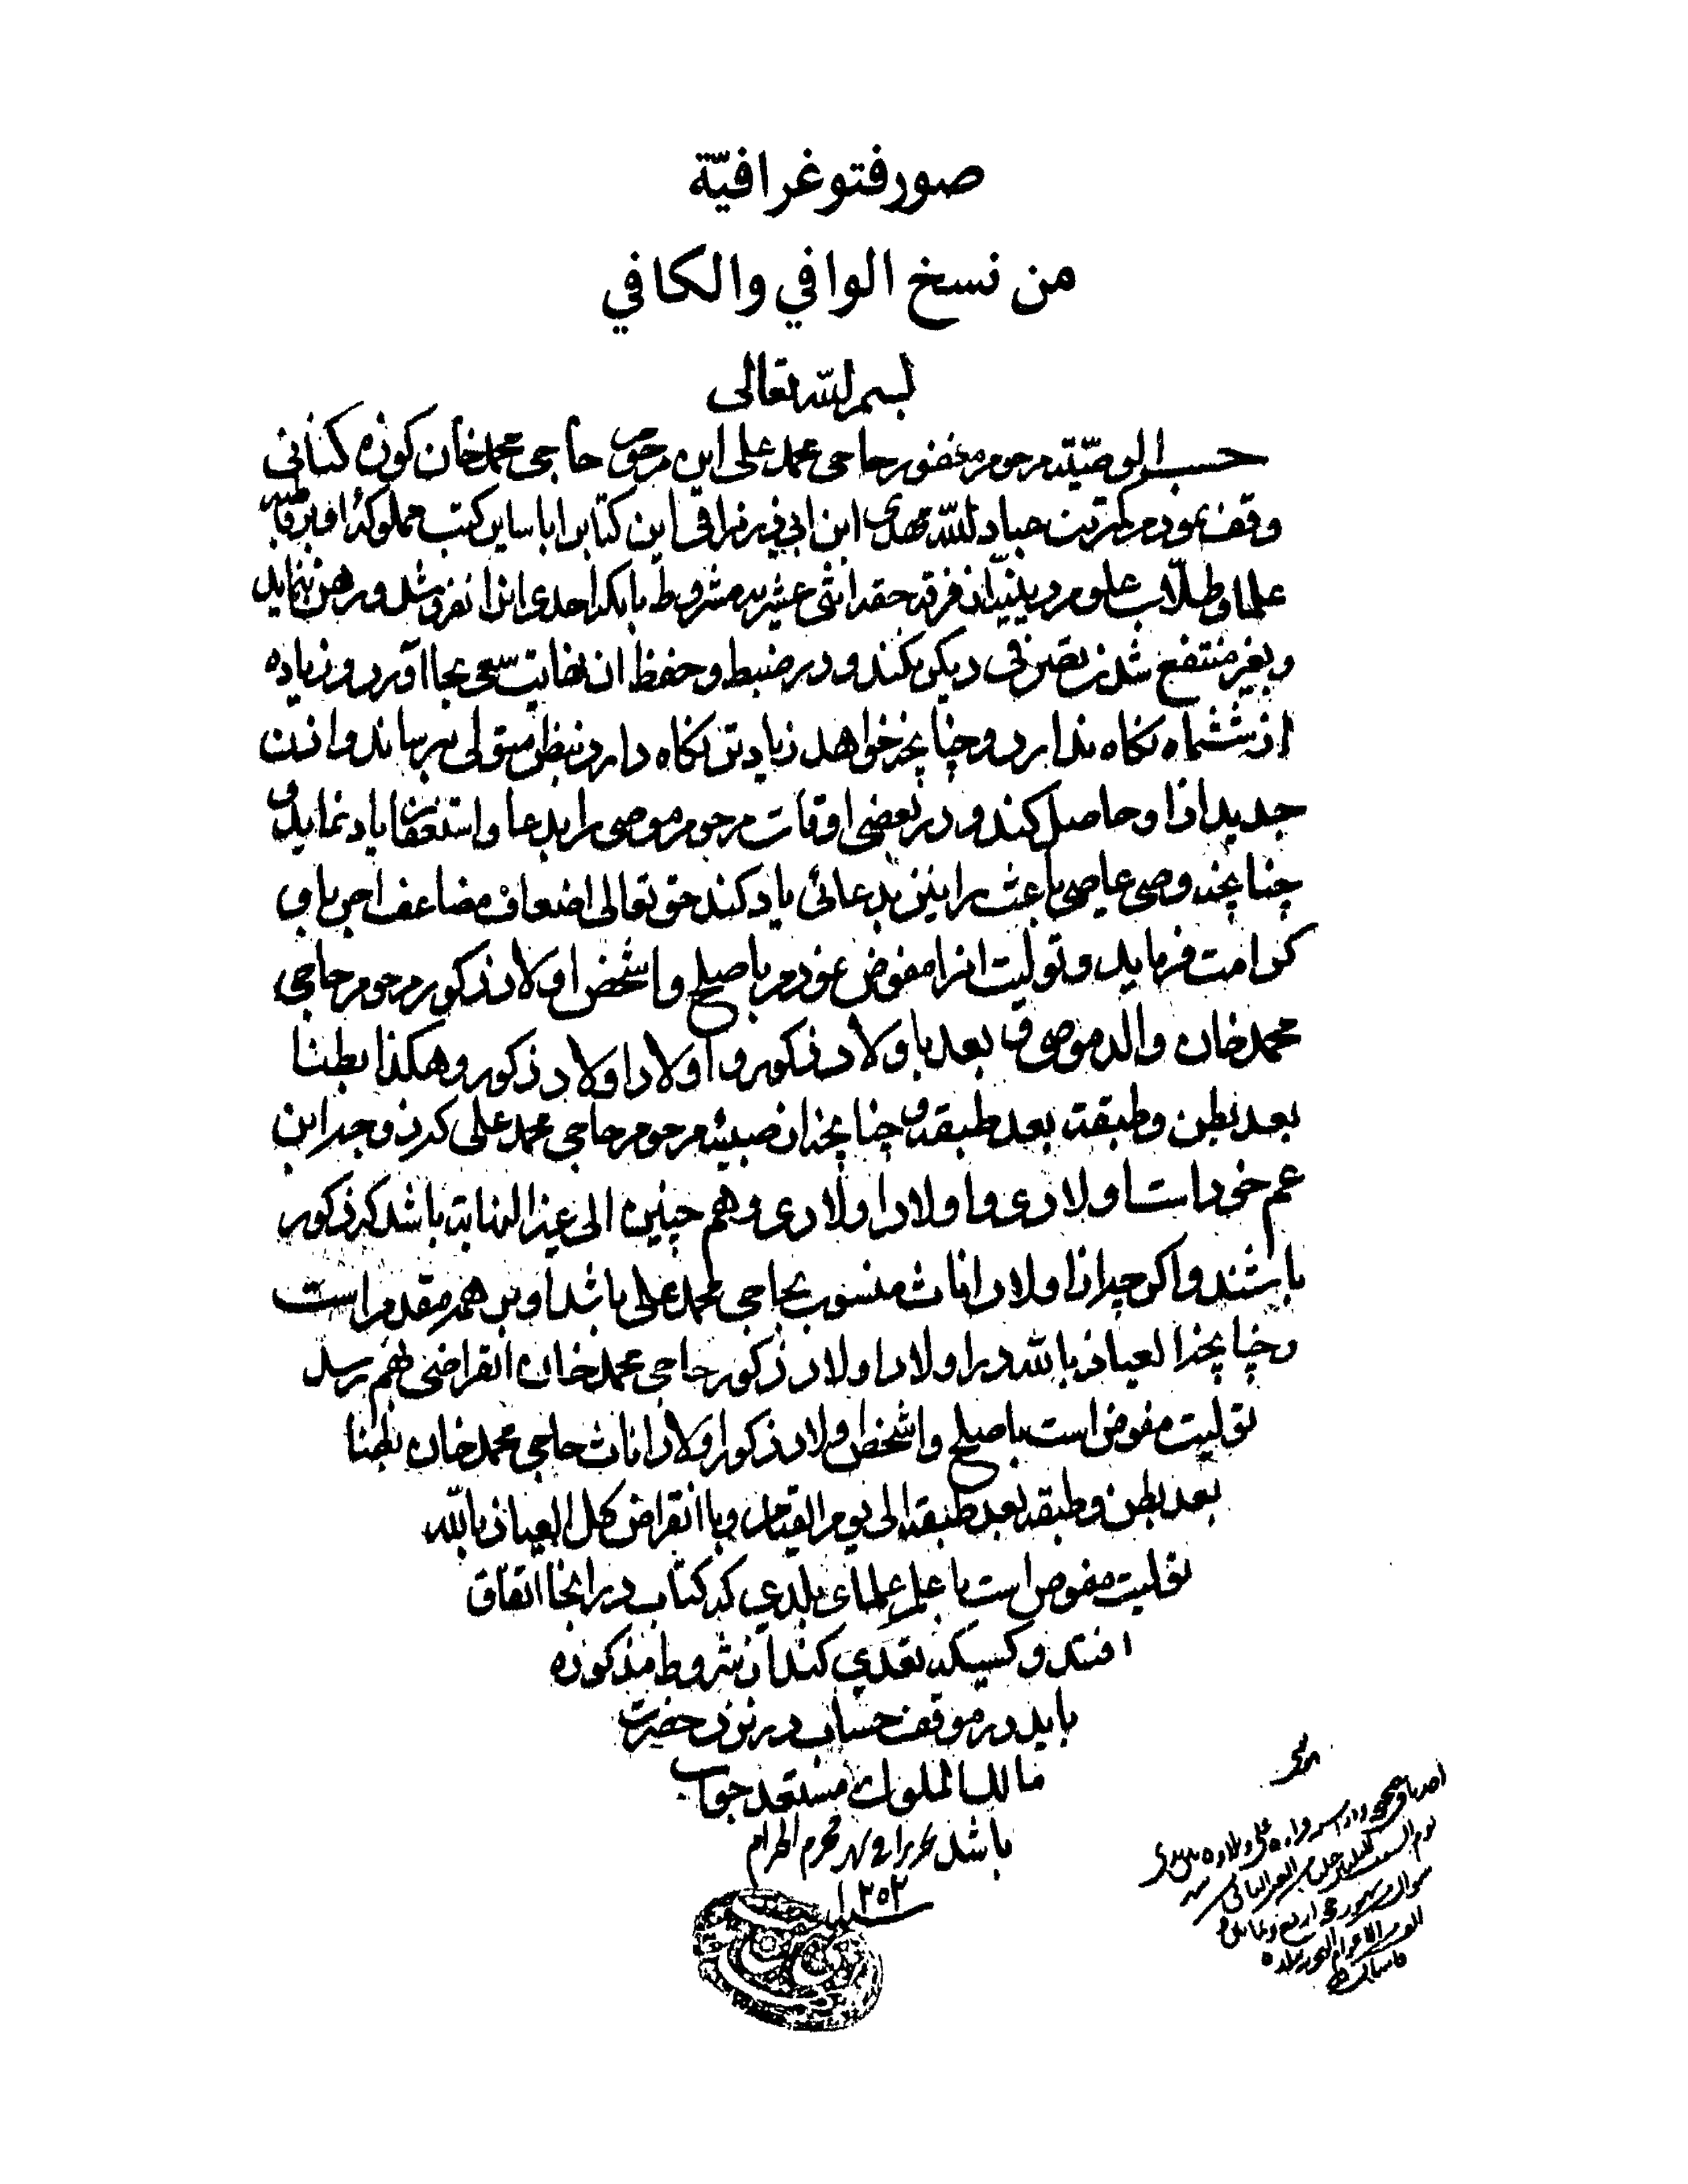 صور فتوغرافيّة
من نسخ الوافي والكافي
بسم الله تعالى
حسب الوصيّة مرحوم مغفور حاجی محمد علی ابن مرحوم حاجی محمد خان کوزه کنانی
وقف نمودم کمترین عباد الله مهدی ابن ابی ذر نراقی این کتاب را با سایر کتب مملوکه او بر قاطبه
علما و طلّاب علوم دینیّه از فرقه حقه اثنی عشریه مشروط بانکه احدی انرا نفروشد و رهن ننماید
و بغیر منتفع شدن تصرفی دیگر نکند و در ضبط و حفظ ان نهایت سعی بجا آورد و زیاده
از ششماه نگاه ندارد و چنانچه خواهد زیادتر نگاه دارد بنظر متولی برساند و اذن
جدید از او حاصل کند و در بعضی اوقات مرحوم موصی را بدعا و استغفار یاد نماید و
چنانچه وصی عاصی باعث را نیز بدعائی یاد کند حق تعالی اضعاف مضاعف اجر باو
کرامت فرماید و تولیت انرا مفوض نمودم باصلح و اشخص اولاد ذکور مرحوم حاجی
محمد خان والد موصی و بعد باولاد ذکور و اولاد اولاد ذکور و هکذا بطنا
بعد بطن و طبقة بعد طبقة و چنانچه از صبیّه مرحوم حاجی محمد علی که زوجه ابن
عم خود است اولادی و اولاد اولادی و هم چنین الی غیر النهایة باشد که ذکور
باشند و اگر چه از اولاد اناث منسوب بحاجی محمد علی باشد او بر همه مقدم است
و چنانچه العیاذ بالله در اولاد اولاد ذکور حاجی محمد خان انقراضی بهم رسد
تولیت مفوض است باصلح و اشخص اولاد ذکور اولاد اناث حاجی محمد خان بطنا
بعد بطن و طبقه بعد طبقه الی یوم القیام و با انقراض کل العیاذ بالله
تولیت مفوض است باعلم علمای بلدی که کتاب در انجا اتفاق
افتد و کسیکه تعدی کند از شروط مذکوره
باید در موقف حساب در نزد حضرت
مالک الملوک مستعد جواب
باشد تحریرا فی شهر محرم الحرام
سنه ۱۲۵۲